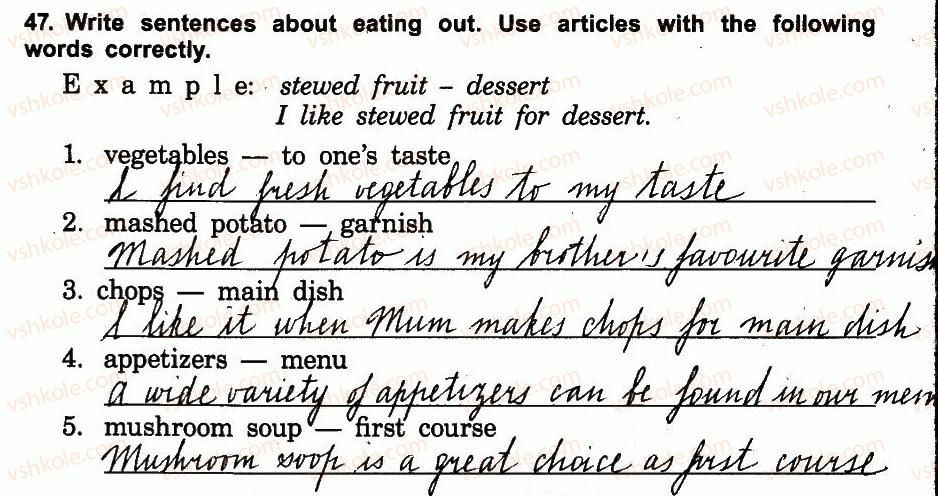 47. Write sentences about eating out. Use articles with the following
words correctly.
E x a m p l e: stewed fruit – dessert
I like stewed fruit for dessert.
1. vegetables — to one's taste
I find fresh vegetables to my taste
2. mashed potato — garnish
Mashed potato is my brother's favourite garnis
3. chops — main dish
I like it when Mum makes chops for main dish
4. appetizers — menu
A wide variety of appetizers can be found in our men
5. mushroom soup — first course
Mushroom soop is a great choice as first course